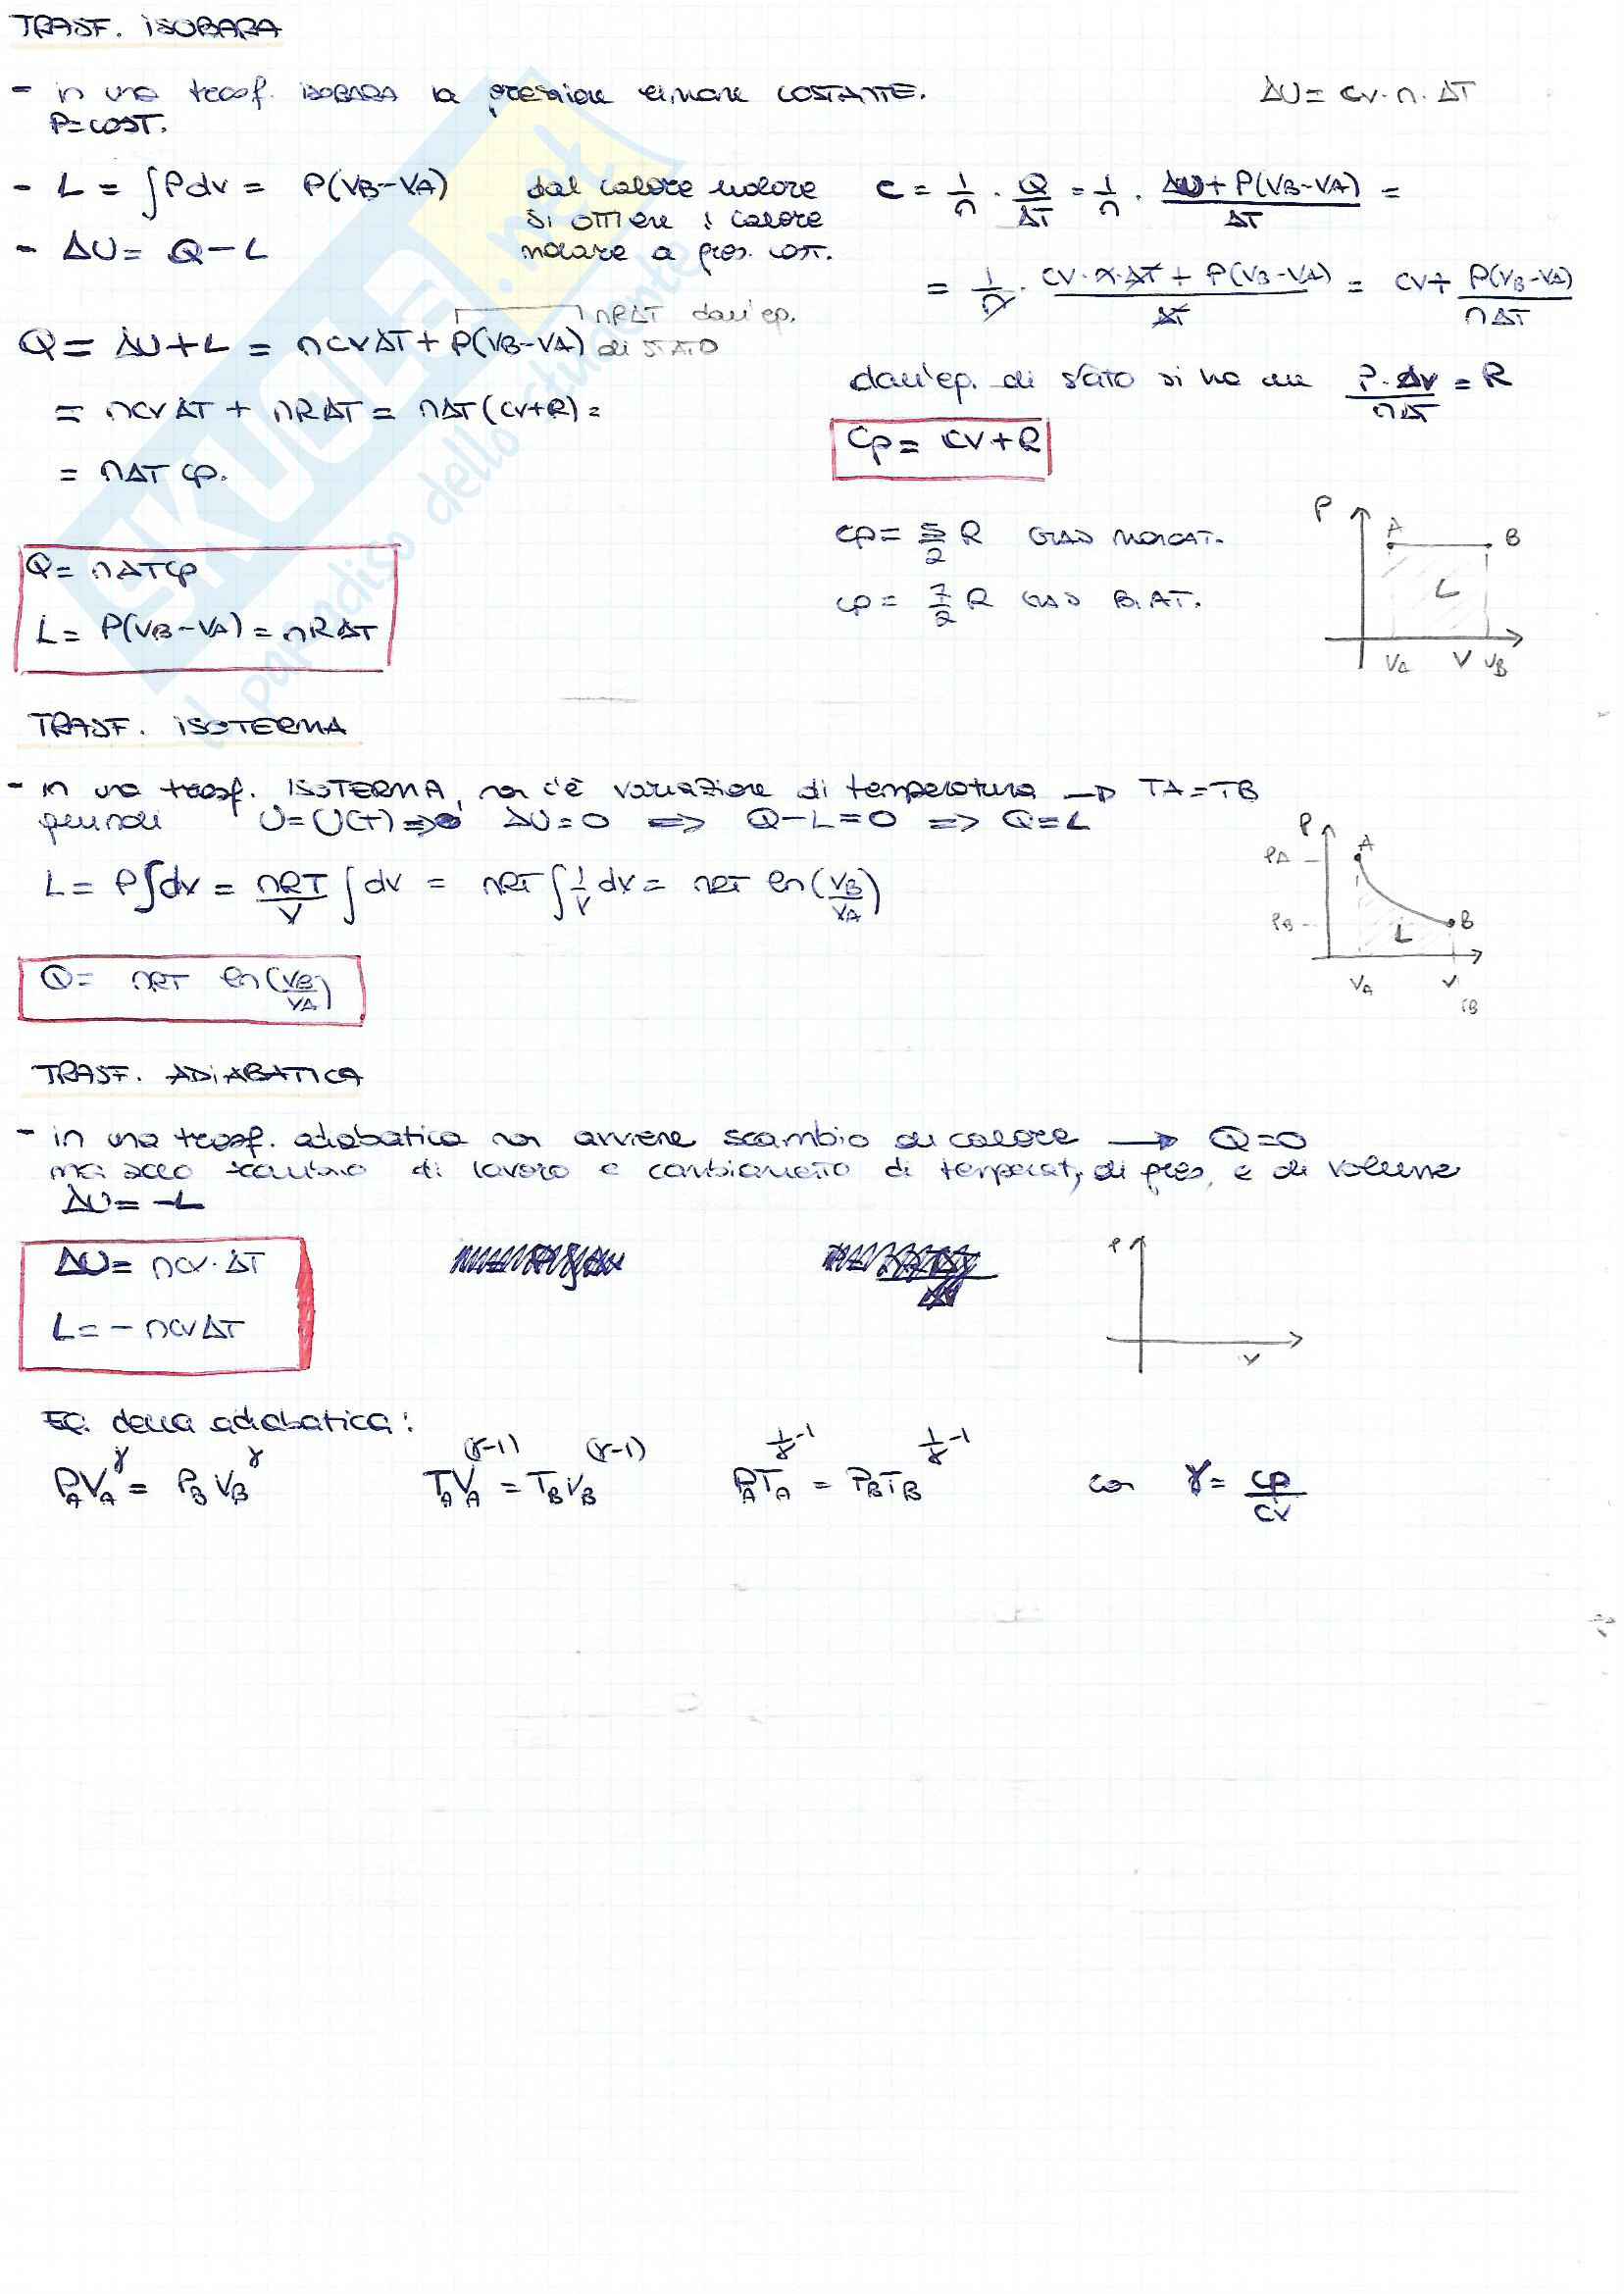 TRASF. ISOBARA
- in una trasf. ISOBARA la pressione rimane COSTANTE.
P=COST.
ΔU= cv·n·ΔT
- L = ∫Pdv = P(VB-VA)
- ΔU= Q-L
dal calore molare
si ottiene il calore
molare a pres. cost.
c = 1/n · Q/ΔT = 1/n · ΔU+P(VB-VA)/ΔT =
= 1/n · cv·n·ΔT + P(VB-VA)/ΔT = cv+ P(VB-VA)/nΔT
nRΔT dall'eq.
di STATO
Q= ΔU+L = ncvΔT+P(VB-VA)
= ncvΔT + nRΔT = nΔT(cv+R)=
= nΔT cp.
dall'eq. di stato si ha che P·Δv/nΔT = R
Cp= cv+R
cp= 5/2 R GAS MONOAT.
cp= 7/2 R GAS BIAT.
P
A
B
L
VA
V
VB
Q= nΔTcp
L= P(VB-VA)=nRΔT
TRASF. ISOTERMA
- in una trasf. ISOTERMA, non c'è variazione di temperatura → TA=TB
quindi U=U(T)=> ΔU=0 => Q-L=0 => Q=L
L= P∫dv = nRT/V ∫dv = nRT ∫1/V dv = nRT ln(VB/VA)
P
PA
A
PB
B
L
VA
V
Q= nRT ln(VB/VA)
TRASF. ADIABATICA
- in una trasf. adiabatica non avviene scambio di calore → Q=0
ma solo scambio di lavoro e cambiamento di temperat, di pres, e di volume
ΔU=-L
ΔU= ncv·ΔT
L= - ncvΔT
P
V
EQ. della adiabatica:
PAVA^γ = PBVB^γ
TAVA^(γ-1) = TBVB^(γ-1)
PATA^1/γ-1 = PBTB^1/γ-1
con γ= cp/cv
SKUOLA.net
il paradiso dello studente